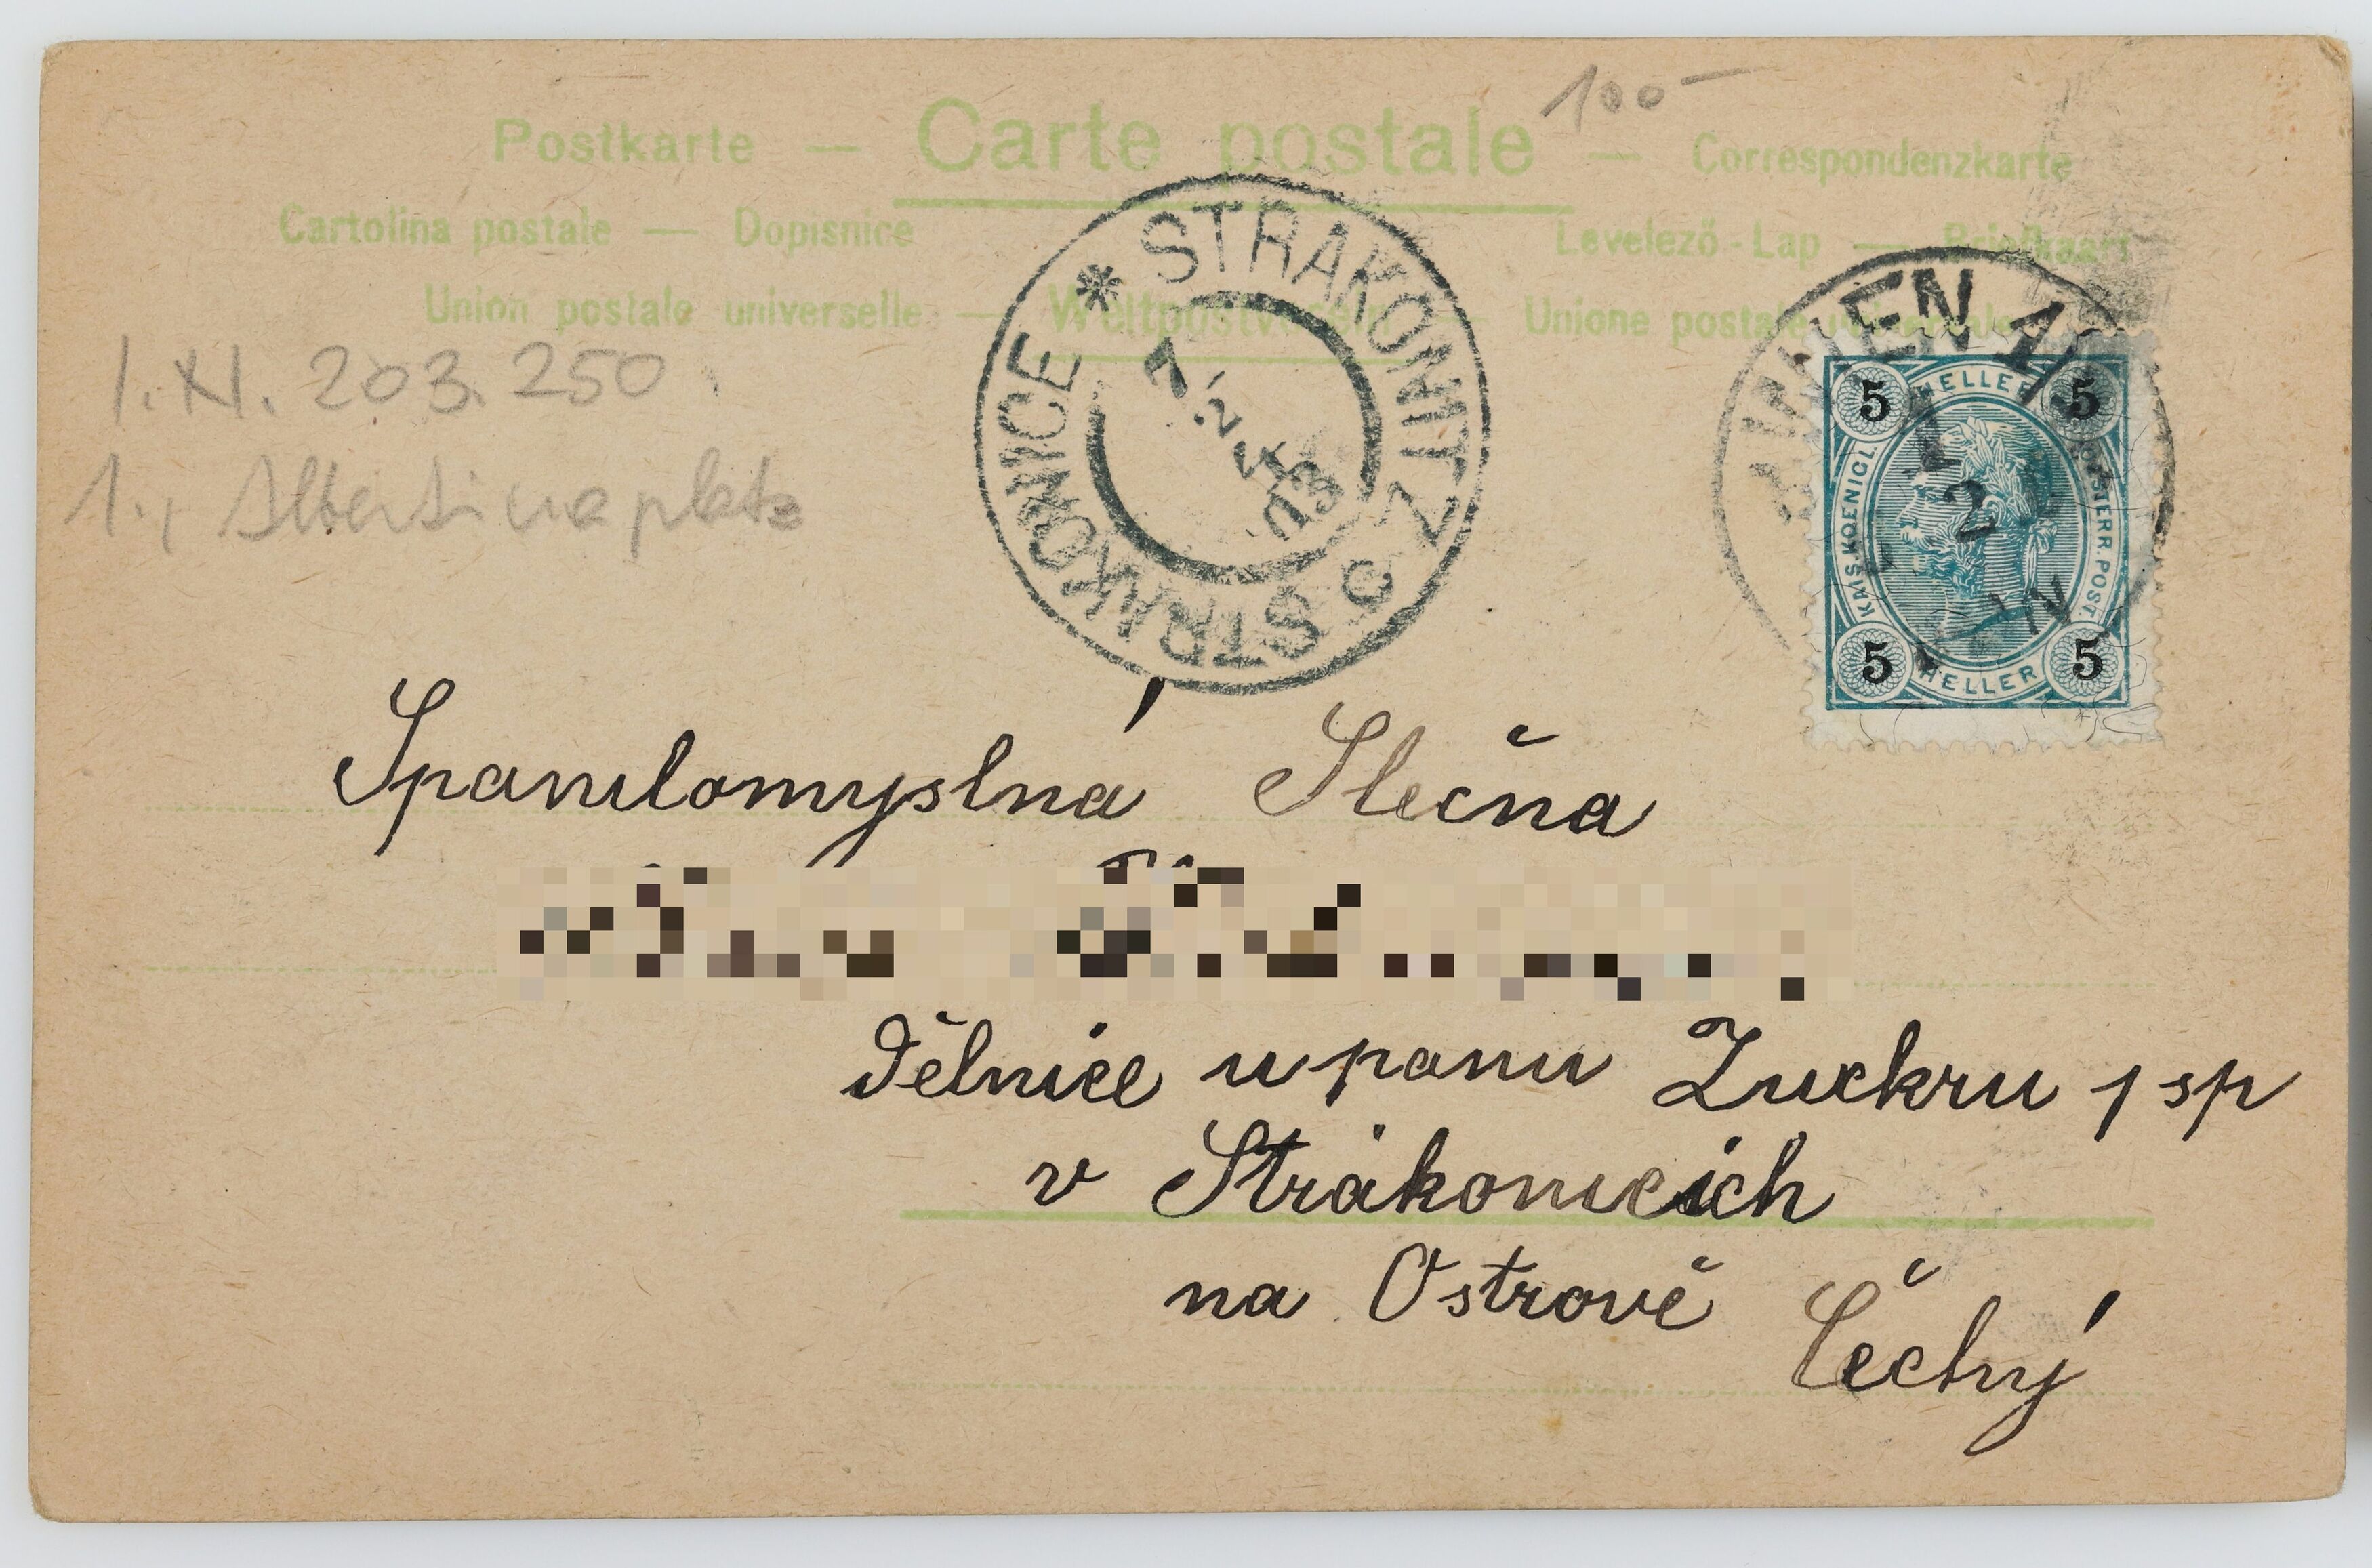 100-
Postkarte — Carte postale — Correspondenzkarte
Cartolina postale — Dopisnice Levelező-Lap — Briefkaart
Union postale universelle — Weltpostverein — Unione postale
I.N. 203.250
1., Albertinaplatz
* STRAKONITZ STRAKONICE
7 2 4 03
WIEN 1/1
5 HELLER 5
KAIS.KOENIGL. OESTERR. POST.
5 HELLER 5
Spanilomyslná Slečna
dělnice u panu Zuckru
v Strakonicích
na Ostrově Čechý